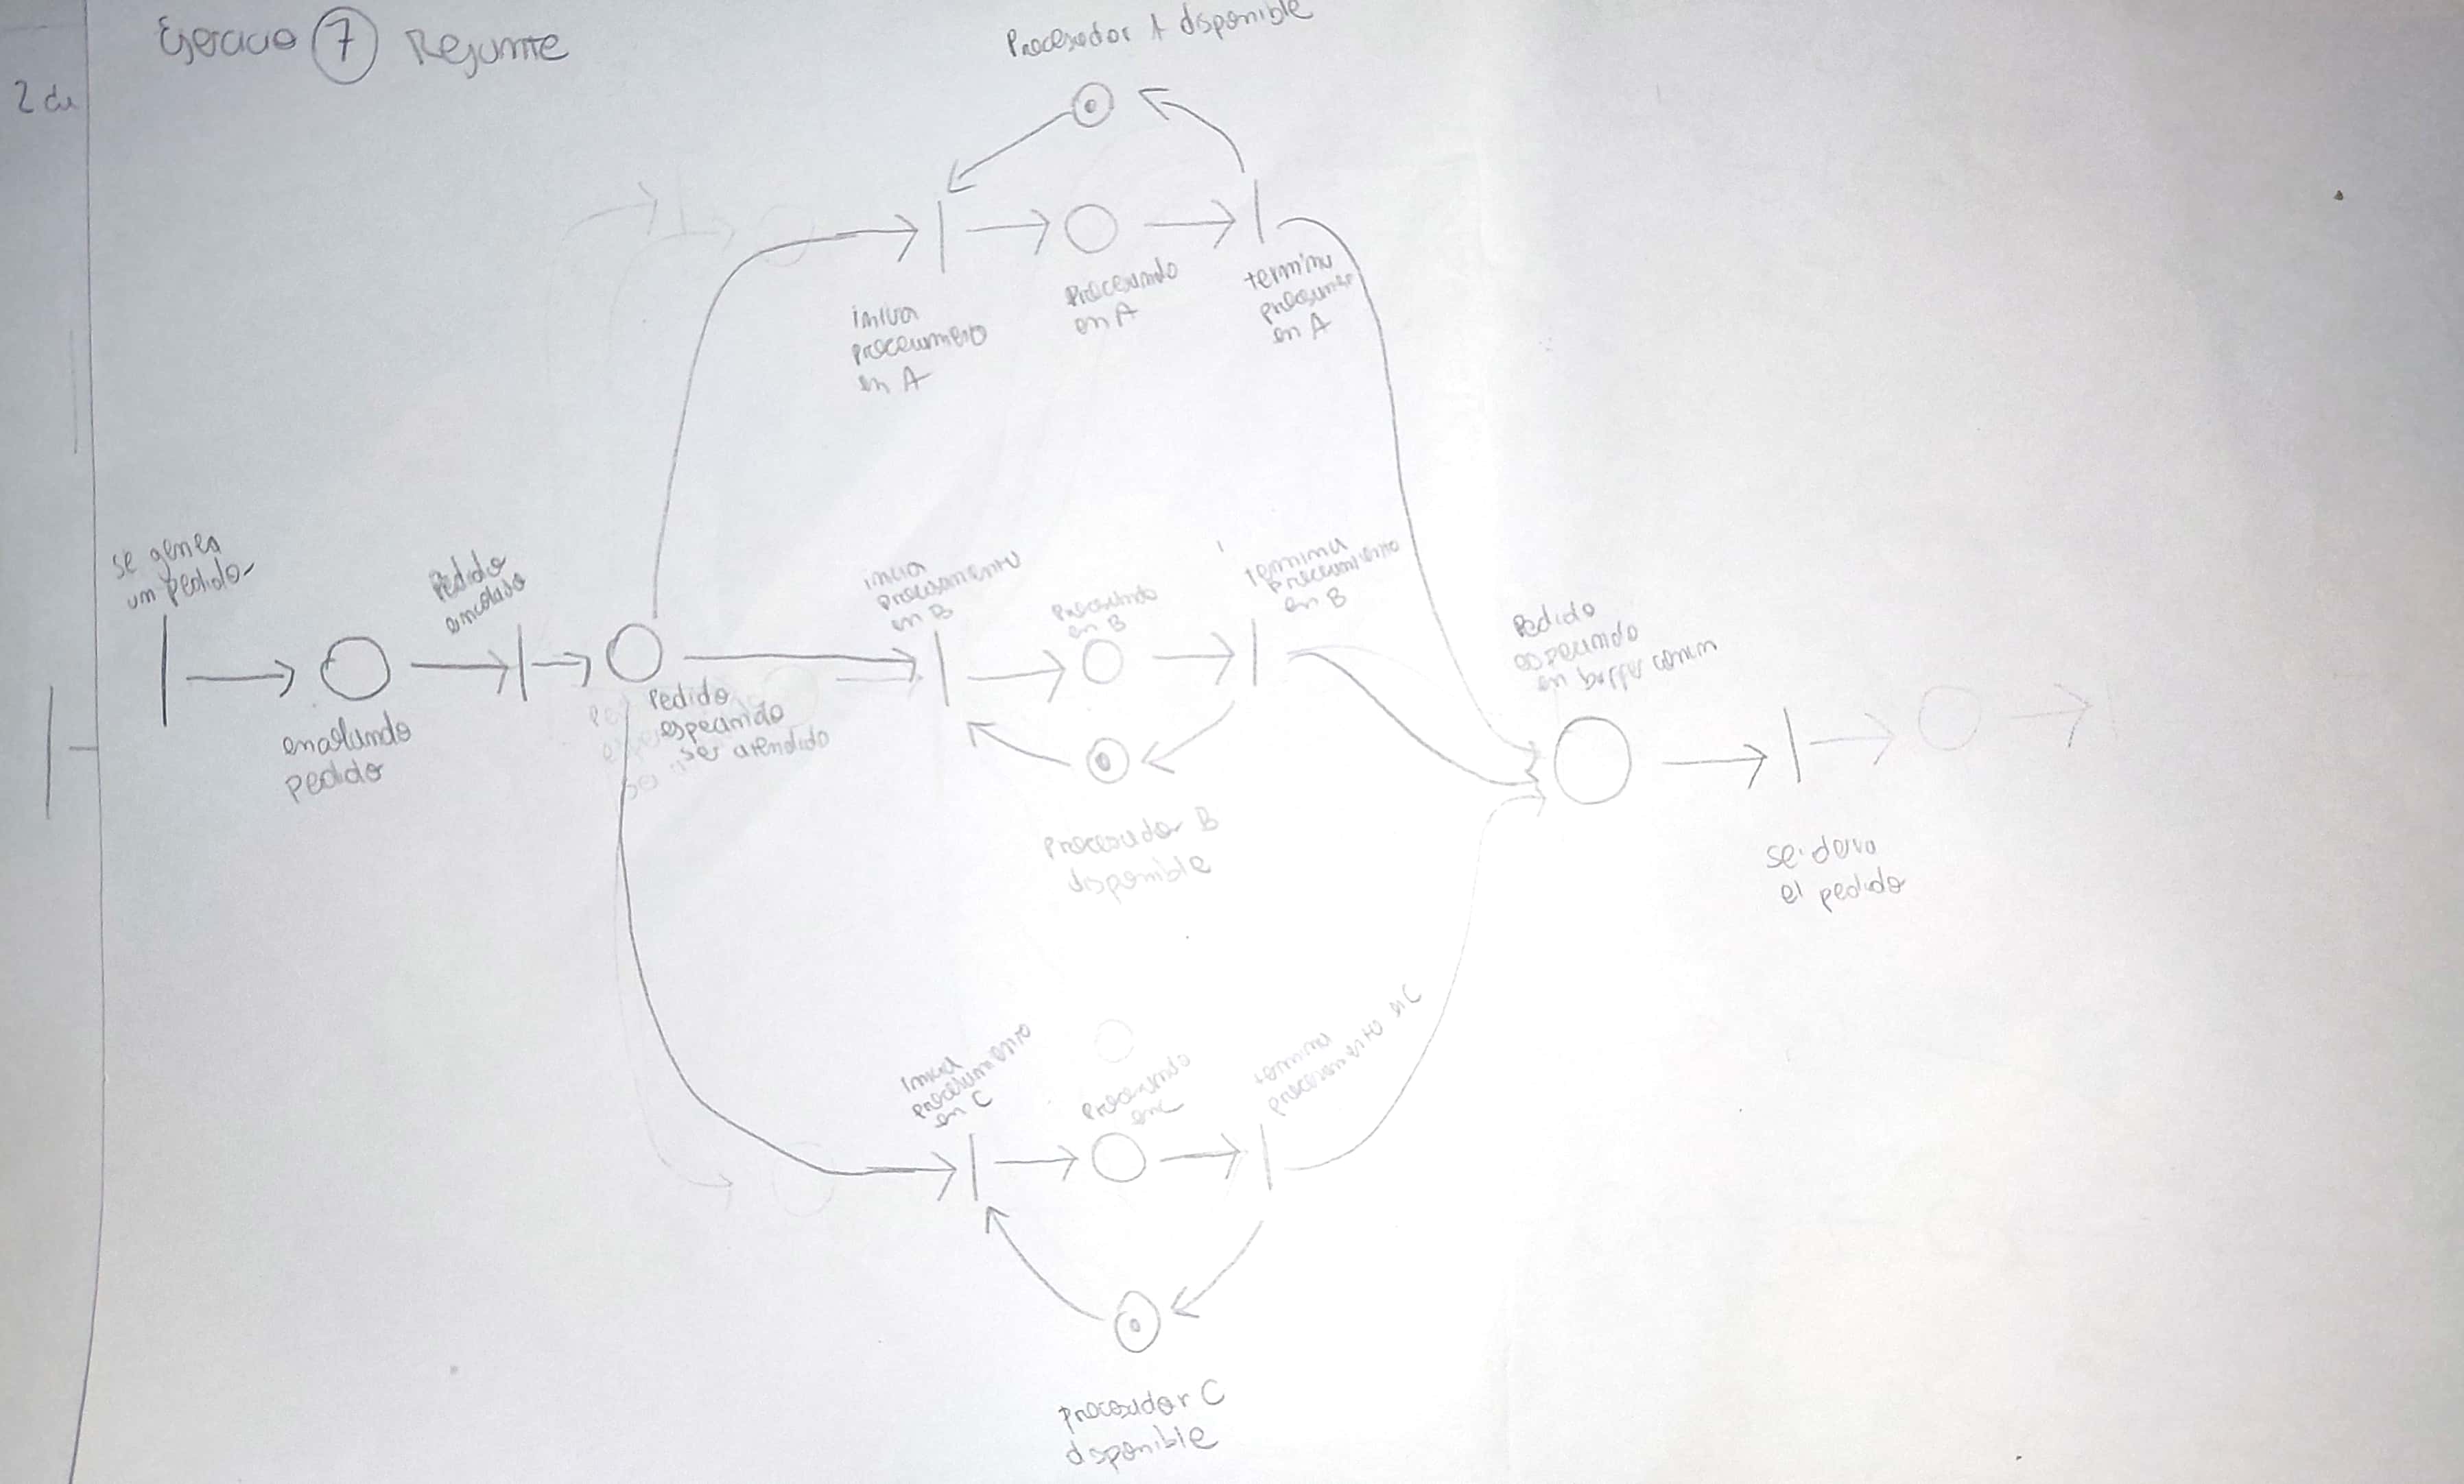 Ejercicio 7 Rejunte
2 de
Procesador A disponible
inicia
procesamiento
en A
Procesando
en A
termina
en A
se genera
un pedido
Pedido
encolado
encolando
pedido
Pedido
esperando
ser atendido
inicia
procesamiento
en B
Procesando
en B
termina
procesamiento
en B
Procesador B
disponible
Pedido
esperando
en buffer comun
se deriva
el pedido
inicia
procesamiento
en C
Procesando
en C
termina
procesamiento en C
procesador C
disponible